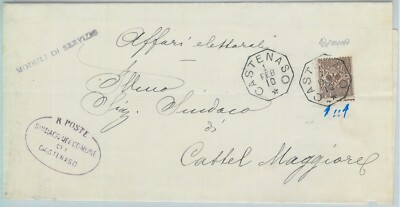 MODULI DI SERVIZIO
Affari elettorali
CASTENASO
1
FEB
10
CASTENASO
Sig. Sindaco
di
Castel Maggiore
R. POSTE
SINDACO DEL COMUNE
DI
CASTENASO